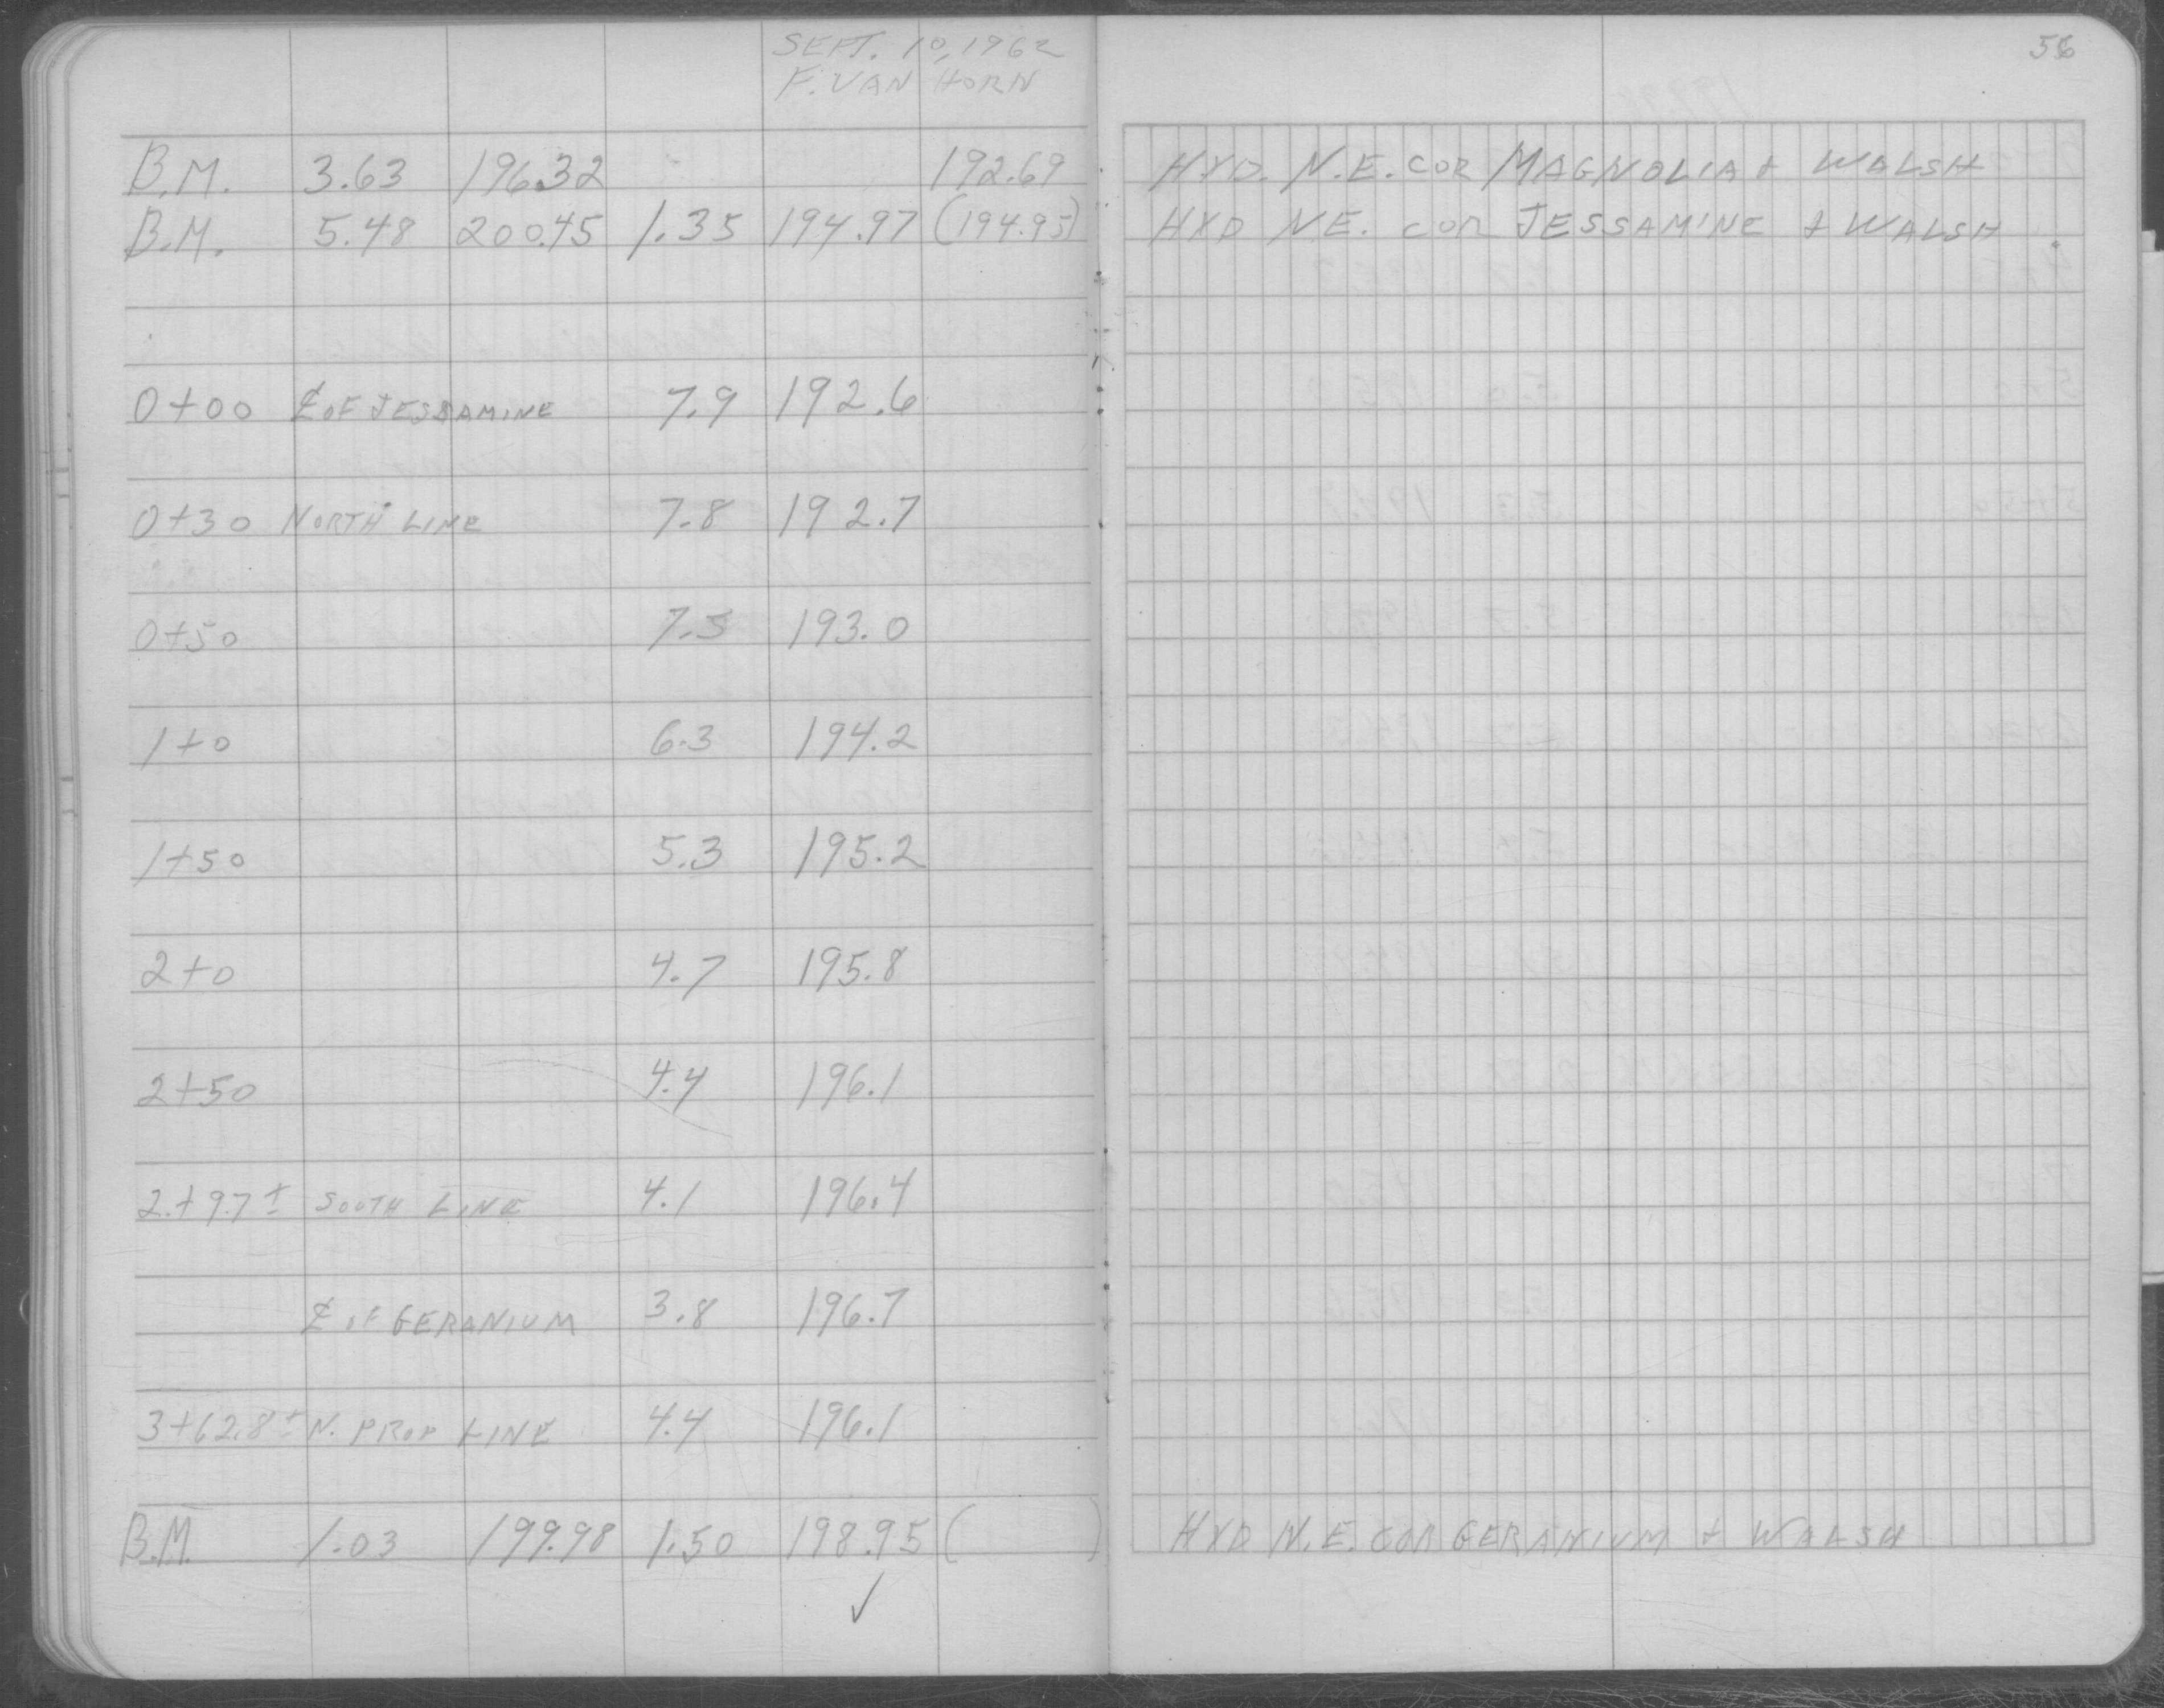 SEPT. 10, 1962
F. VAN HORN
56
B.M. 3.63 196.32 192.69 HYD. N.E. COR MAGNOLIA & WALSH
B.M. 5.48 200.45 1.35 194.97 (194.95) HYD N.E. COR JESSAMINE & WALSH
0+00 ℄ OF JESSAMINE 7.9 192.6
0+30 NORTH LINE 7.8 192.7
0+50 7.5 193.0
1+0 6.3 194.2
1+50 5.3 195.2
2+0 4.7 195.8
2+50 4.4 196.1
2+97± SOUTH LINE 4.1 196.4
℄ OF GERANIUM 3.8 196.7
3+62.8± N. PROP LINE 4.4 196.1
B.M. 1.03 199.98 1.50 198.95 ( ) HYD N.E. COR GERANIUM & WALSH
✓